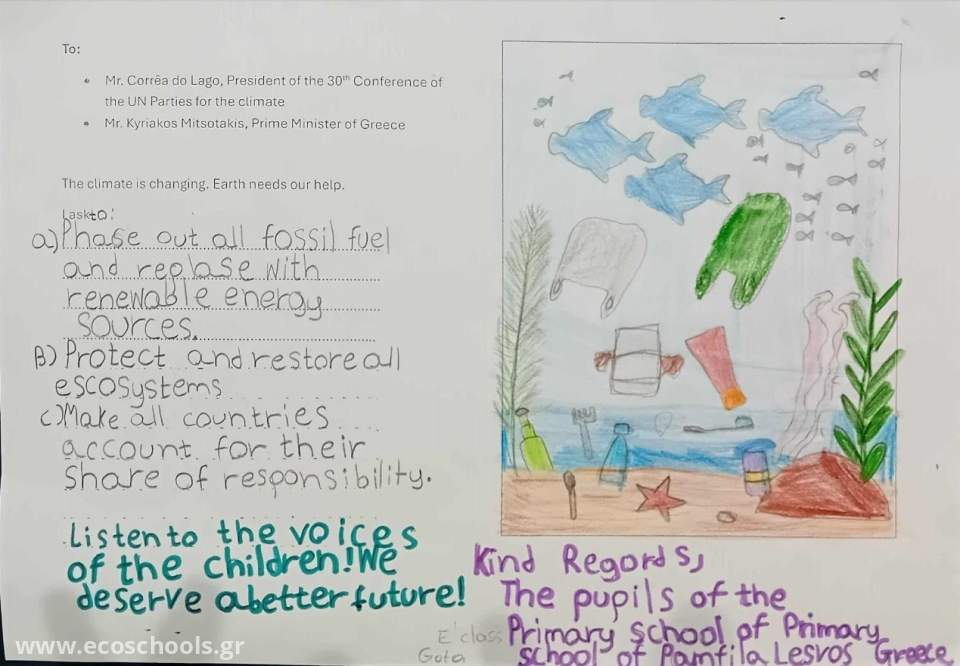 To:
• Mr. Corrêa do Lago, President of the 30th Conference of
the UN Parties for the climate
• Mr. Kyriakos Mitsotakis, Prime Minister of Greece
The climate is changing. Earth needs our help.
I ask to:
a) Phase out all fossil fuel
and replase with
renewable energy
sources.
B) Protect and restore all
escosystems
c) Make all countries
account for their
share of responsibility.
Listen to the voices
of the children! We
deserve a better future!
Kind Regords,
The pupils of the
E' class Primary school of Primary
Gota school of Pamfila Lesvos Greece
www.ecoschools.gr